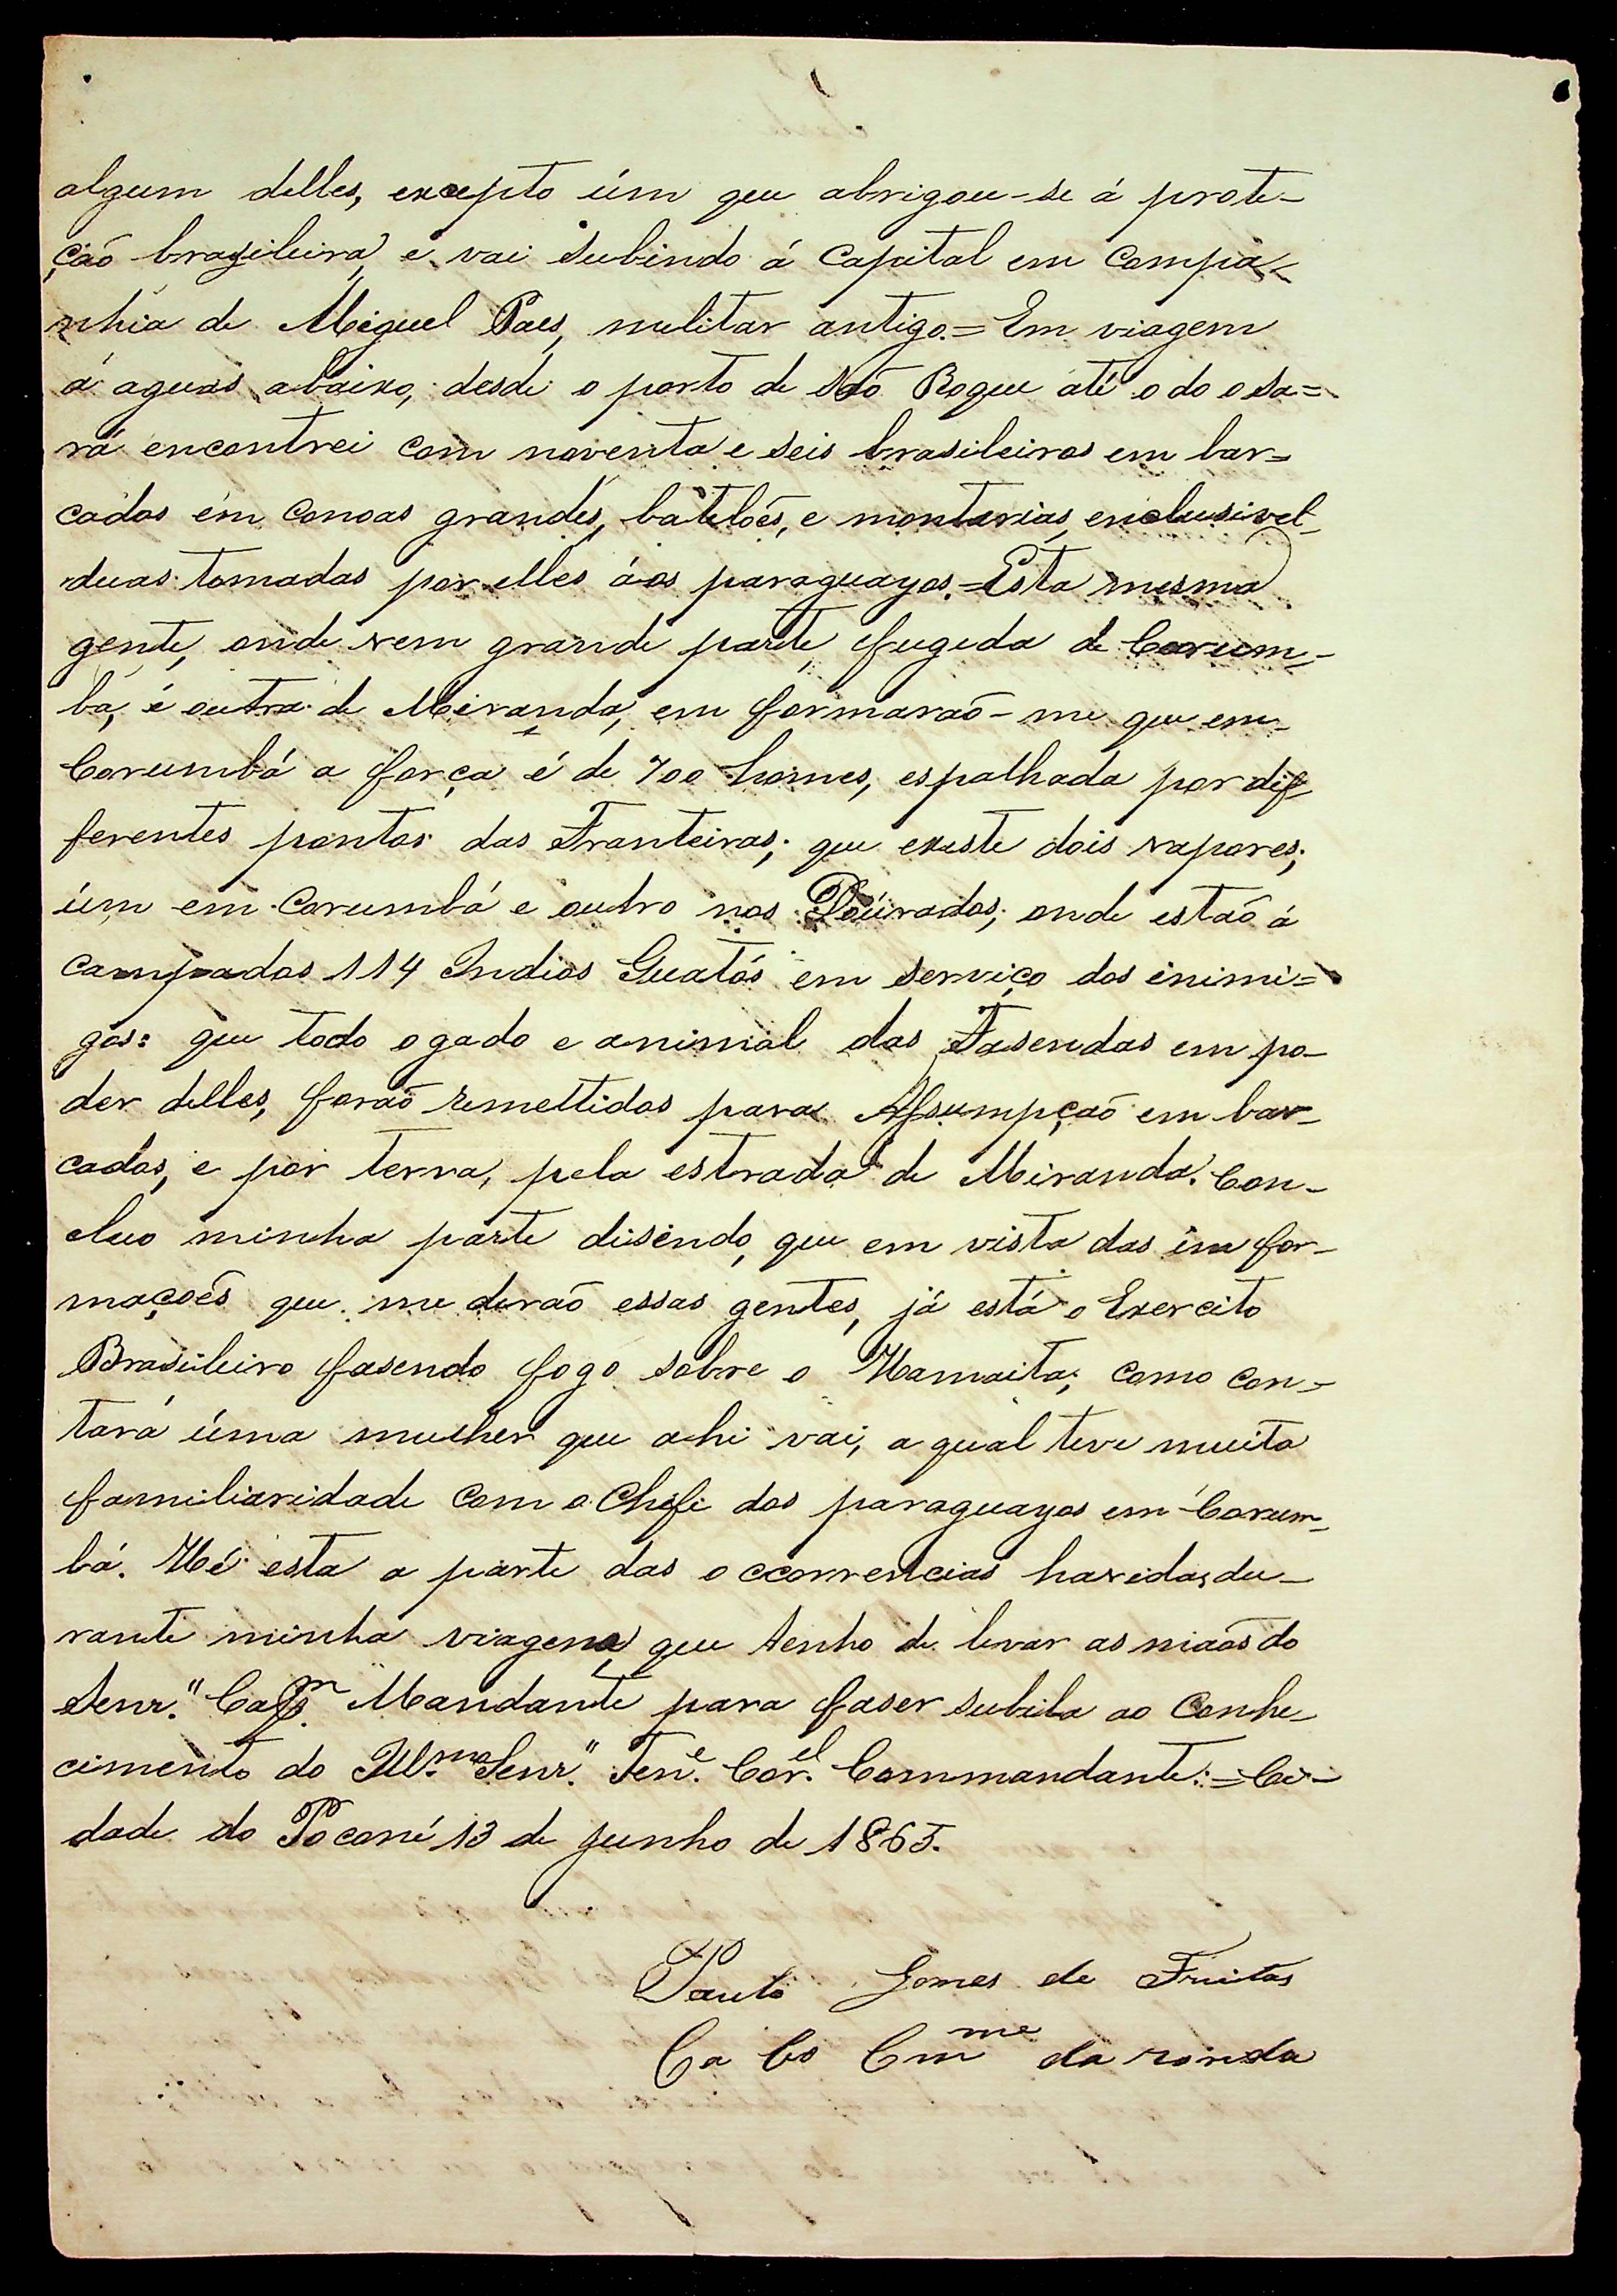 algum delles, excepto úm que abrigou-se á prote-
çaõ brazileira, e vai subindo á Capital em Compa-
nhia de Miguel Paes, militar antigo.=Em viagem
á aguas abaixo, desde o porto de Saõ Roque até o do o Sa=
rá encontrei com noventa e seis brasileiros em bar=
cados em canoas grandes, batelões, e montarias, enclusivel
duas tomadas por elles áos paraguayos.=Esta mesma
gente, onde vem grande parte, fugeda de Corum-
bá, é outra de Miranda, em formaraõ-me que em-
Corumbá a força é de 700 homes, espalhada por dif
ferentes pontos das Franteiras; que existe dois vapores;
úm em Corumbá e outro nos Doúrados; onde estaõ á
campados 114 Indios Guatós em serviço dos enimi=
gos: que todo o gado e animal das Fasendas em po-
der delles, foraõ remettidos para Assumpçaõ em bar-
cados, e por terra, pela estrada de Miranda. Con-
cluo minha parte disendo, que em vista das im for-
maçoẽs que me deraõ essas gentes, já está o Exercito
Brasileiro fasendo fogo sobre o Hamaita; como con-
tará úma mulher que ahi vai, a qual teve muita
familiaridade com o Chefe dos paraguayos em Corum-
bá. Hé esta a parte das occorrencias havidas, du-
rante minha viagem, que tenho de levar as maõs do
Senr." Cap.m Mandante para faser subila ao Conhe-
cimento do Ill.mo Senr." Ten.e Cor.el Commandante:=Ci-
dade do Poconé 13 de Junho de 1865.
Paulo Gomes de Freitas
Ca bo Cm me da ronda